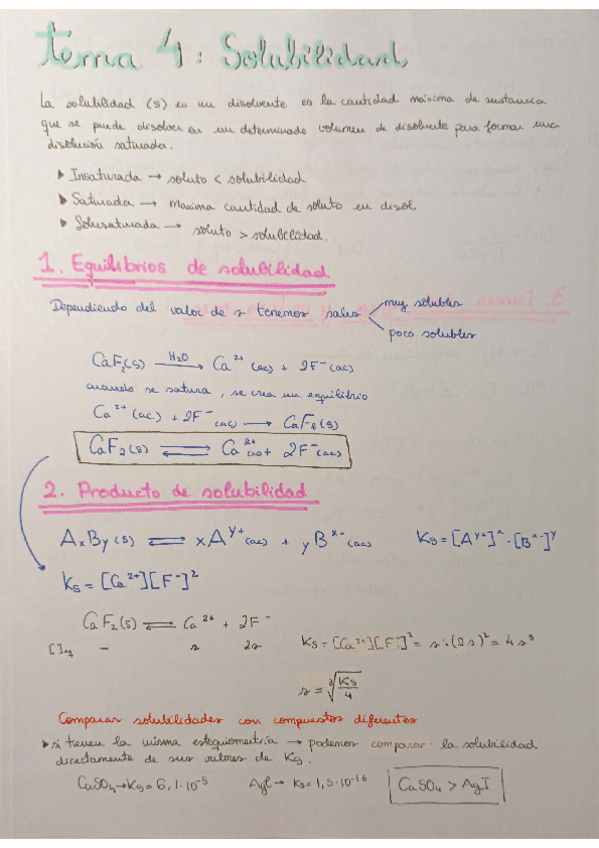 tema 4: Solubilidad
La solubilidad (s) en un disolvente es la cantidad máxima de sustancia
que se puede disolver en un determinado volumen de disolvente para formar una
disolución saturada.
▸ Insaturada → soluto < solubilidad
▸ Saturada → maxima cantidad de soluto en disol
▸ Sobresaturada → soluto > solubilidad.
1. Equilibrios de solubilidad
Dependiendo del valor de s tenemos sales muy solubles
poco solubles
CaF₂(s) —H₂O→ Ca²⁺(ac) + 2F⁻(ac)
cuando se satura, se crea un equilibrio
Ca²⁺(ac) + 2F⁻(ac) → CaF₂(s)
CaF₂(s) ⇌ Ca²⁺(ac) + 2F⁻(ac)
2. Producto de solubilidad
AxBy(s) ⇌ xA^y+(ac) + yB^x-(ac) Ks = [A^y+]^x · [B^x-]^y
Ks = [Ca²⁺][F⁻]²
CaF₂(s) ⇌ Ca²⁺ + 2F⁻
[ ]eq - s 2s Ks = [Ca²⁺][F⁻]² = s·(2s)² = 4s³
s = ∛(Ks/4)
Comparar solubilidades con compuestos diferentes
▸ si tienen la misma estequiometría → podemos comparar la solubilidad
directamente de sus valores de Ks.
CaSO₄ → Ks = 6,1·10⁻⁵ AgI → Ks = 1,5·10⁻¹⁶ CaSO₄ > AgI